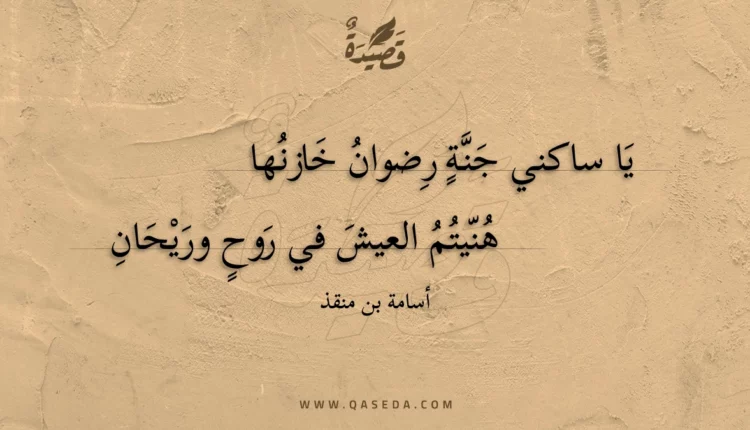 قَصِيدَةٌ
يَا ساكني جَنَّةٍ رِضوانُ خَازنُها
هُنّيتُمُ العيشَ في رَوحٍ ورَيْحَانِ
أسامة بن منقذ
WWW.QASEDA.COM